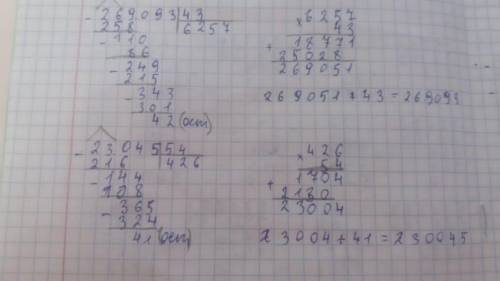 - 269.093 | 43
258 6257
- 110
86
- 249
215
- 343
301
42 (ост)
× 6257
43
+ 18771
25028
269051
269051 + 43 = 269093
- 23.045 | 54
216 426
- 144
108
- 365
324
41 (ост)
× 426
54
+ 1704
2130
23004
23004 + 41 = 230045